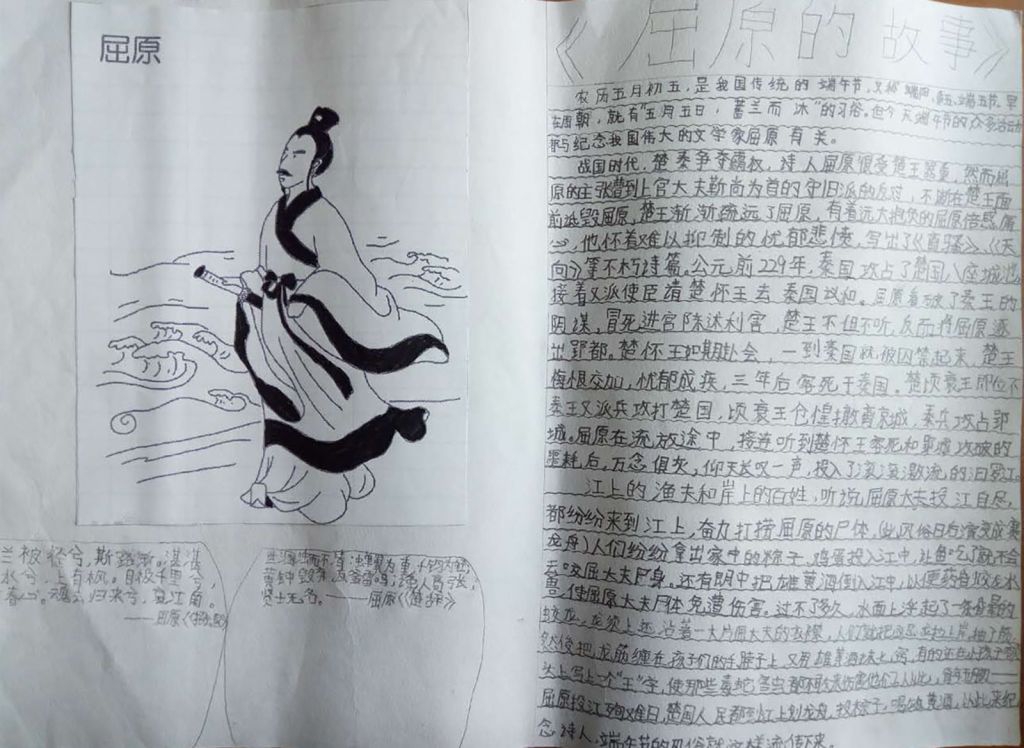 屈原
兰被径兮,斯路渐。湛湛
水兮,上有枫。目极千里兮,
春心。魂兮归来兮,哀江南。
——屈原《招魂》
世溷浊而不清:蝉翼为重,千钧为轻;
黄钟毁弃,瓦釜雷鸣;谗人高张,
贤士无名。——屈原《卜居》
《屈原的故事》
农历五月初五,是我国传统的端午节,又称端阳、重五、端五节。早
在周朝,就有“五月五日,蓄兰而沐”的习俗。但今天端午节的众多活动
都与纪念我国伟大的文学家屈原有关。
战国时代,楚秦争夺霸权,诗人屈原很受楚王器重,然而屈
原的主张遭到上官大夫靳尚为首的守旧派的反对,不断在楚王面
前诋毁屈原,楚王渐渐疏远了屈原,有着远大抱负的屈原倍感痛
心,他怀着难以抑制的忧郁悲愤,写出了《离骚》、《天
向》等不朽诗篇。公元前229年,秦国攻占了楚国八座城池,
接着又派使臣请楚怀王去秦国议和。屈原看破了秦王的
阴谋,冒死进宫陈述利害,楚王不但不听,反而将屈原逐
出郢都。楚怀王如期赴会,一到秦国就被囚禁起来,楚王
悔恨交加,忧郁成疾,三年后客死于秦国。楚顷衰王即位不
秦王又派兵攻打楚国,顷衰王仓惶撤离京城,秦兵攻占郢
城。屈原在流放途中,接连听到楚怀王客死和郢城攻破的
噩耗后,万念俱灰,仰天长叹一声,投入了滚滚激流的汨罗江。
江上的渔夫和岸上的百姓,听说屈原大夫投江自尽,
都纷纷来到江上,奋力打捞屈原的尸体,(此风俗日后演变成赛
龙舟)人们纷纷拿出家中的粽子、鸡蛋投入江中,让鱼吃了就不会
去咬屈大夫尸身。还有郎中把雄黄酒倒入江中,以便药昏蛟龙水
兽,使屈原大夫尸体免遭伤害。过不了多久,水面上浮起了一条昏晕的
蛟龙,龙须上还沾着一大片屈大夫的衣襟,人们就把这恶龙拉上岸,抽了筋,
然后把龙筋缠在孩子们的手脖子上,又用雄黄酒抹七窍,有的还在小孩子额
头上写上一个“王”字,使那些毒蛇害虫都不敢来伤害他们。从此,每年五月初
屈原投江殉难日,楚国人民都到江上划龙舟,投粽子,喝雄黄酒,以此来纪
念诗人,端午节的风俗就这样流传下来